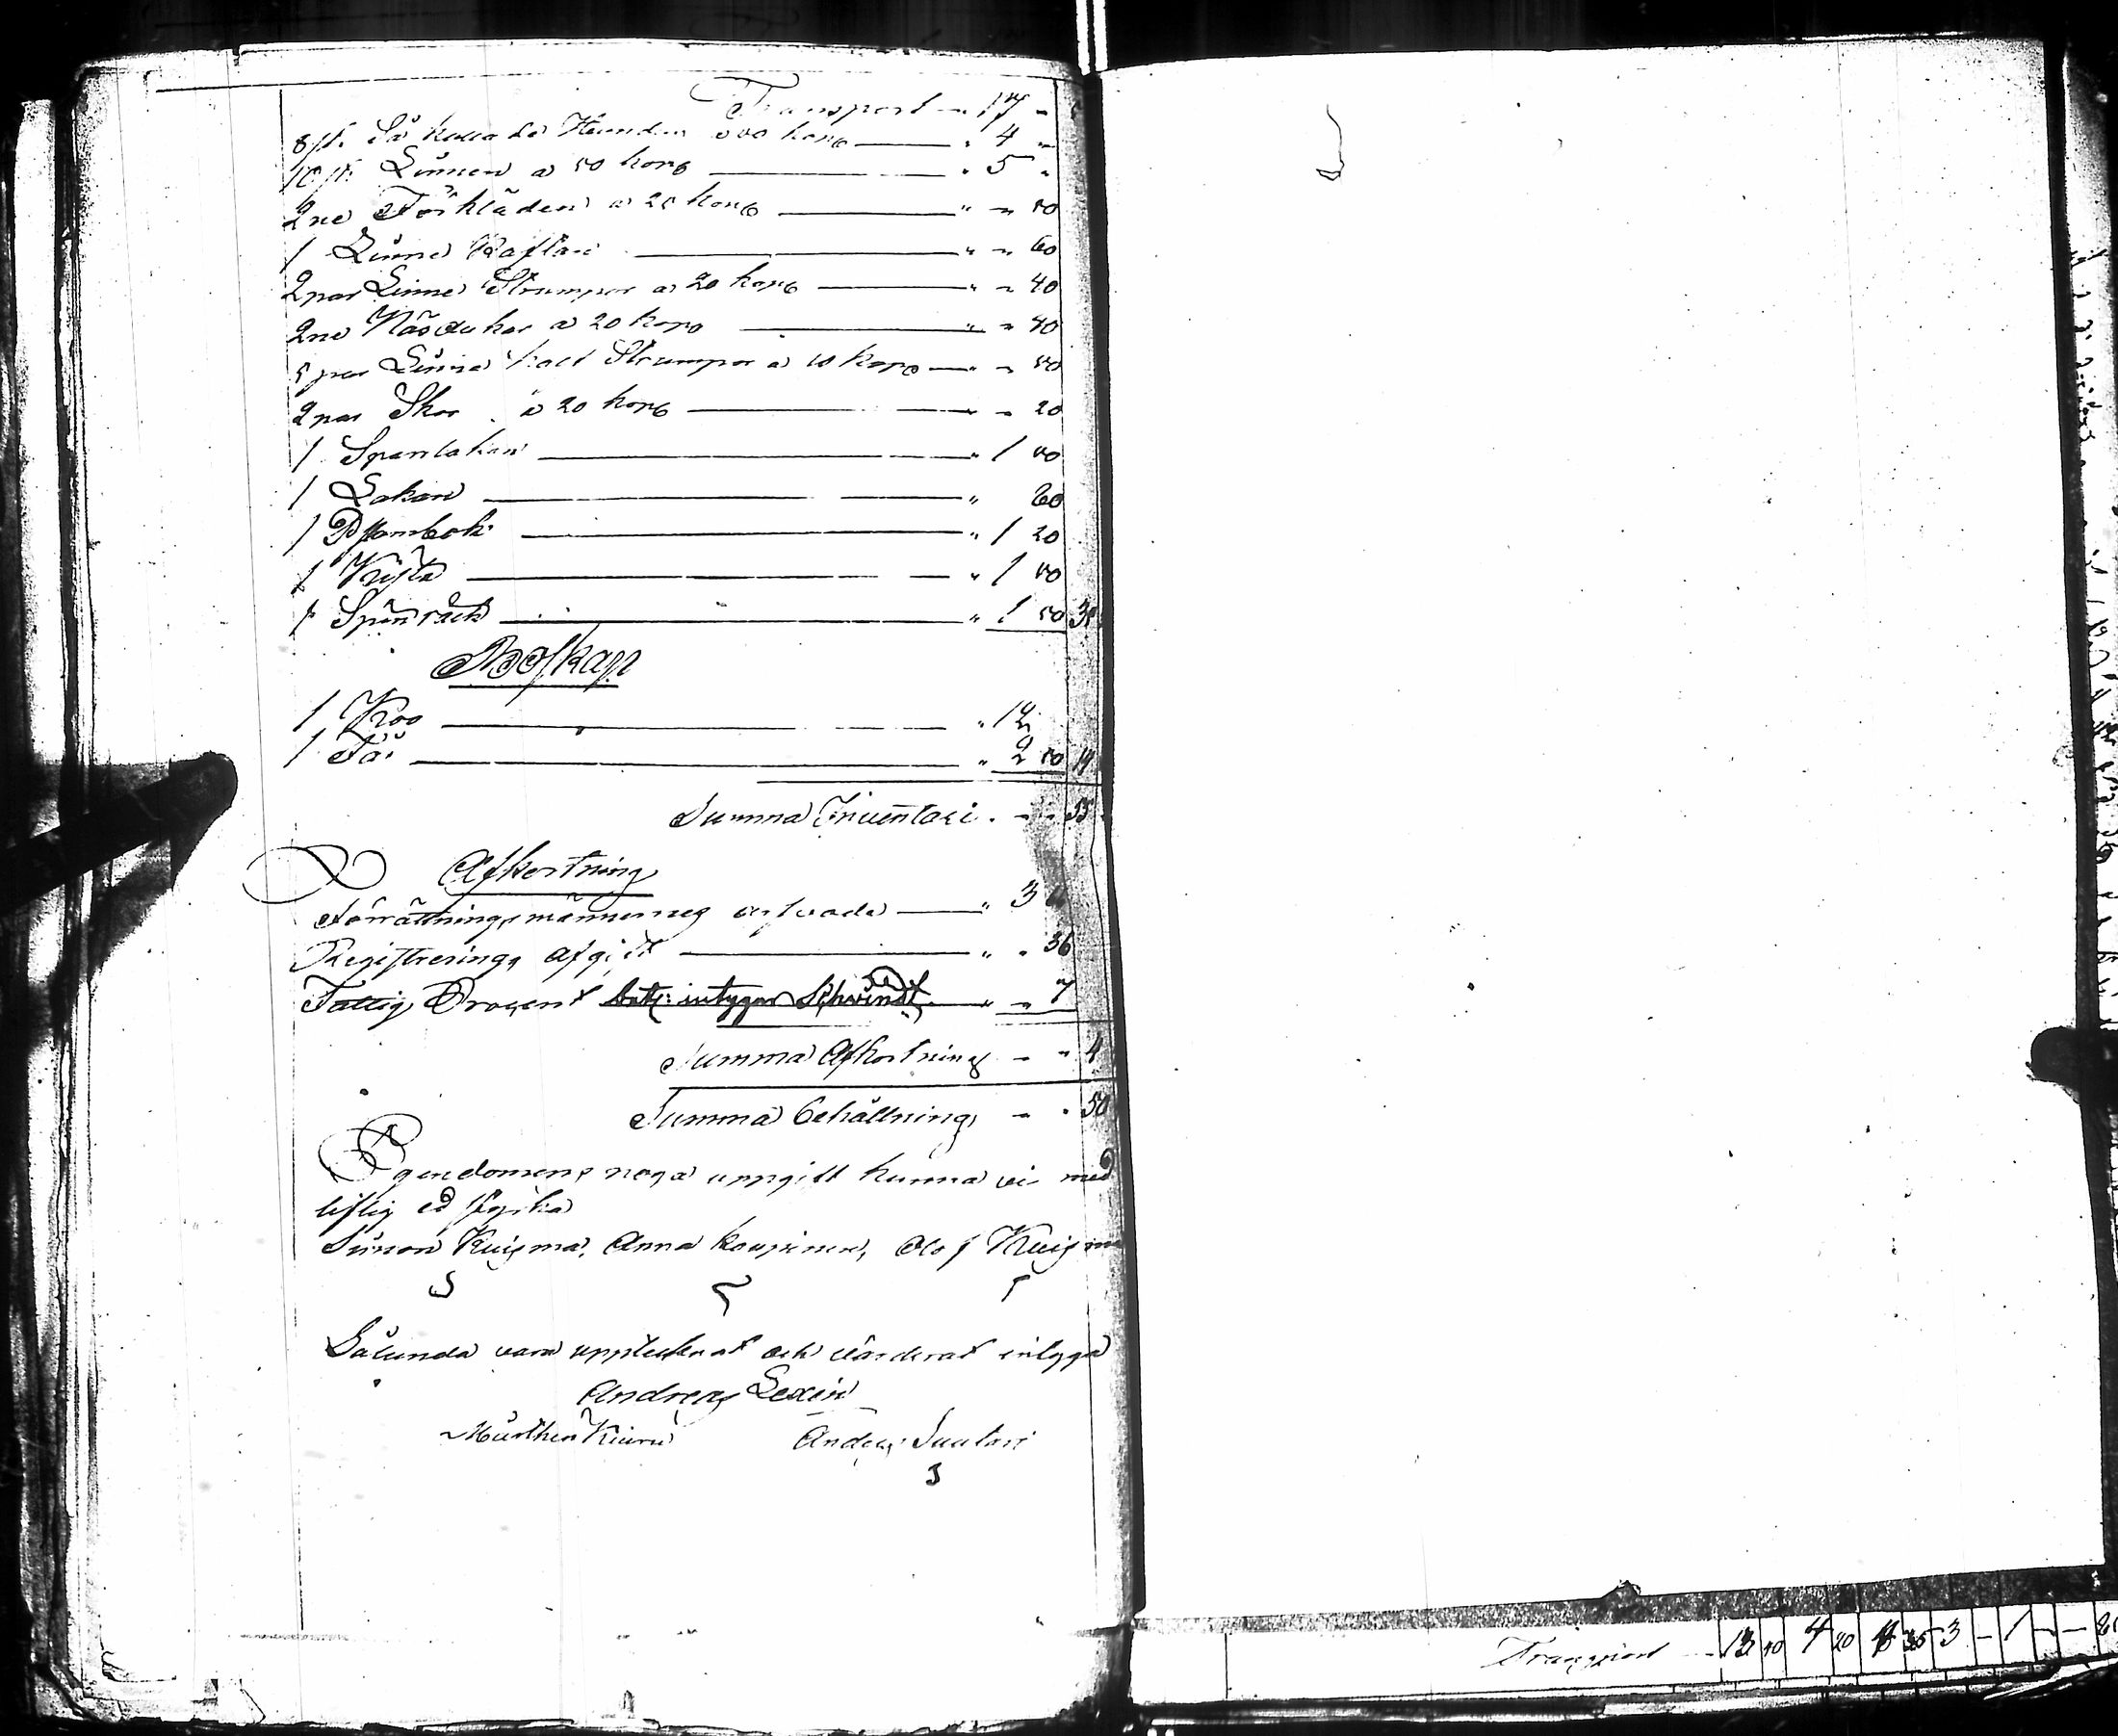 Transport 17 -
8 st. Så kallade Hundur a 50 kop. " 4 -
10 st. Linnen a 50 kop " 5 -
2ne Förkläden a 25 kop " - 50
1 Linne Kaftan " - 60
2 par Linne Strumpor a 20 kop " - 40
2ne Näsdukar a 20 kop " - 40
5 par Linne Strumpor a 10 kop " - 50
2 par Skor a 20 kop " - 20
1 " 1 50
1 Lakan " 60
1 " 1 20
1 Kista " 1 50
1 Spinråck " 1 50
Boskap
1 Koo " 12
1 Får " 2 50
Summa Inventari - - 55
Afkortning
Förrättningsmännernes arfvode " 3
Registrerings afgift " " 36
Fattig Procent betr: intygar Schvindt " " 7
Summa Afkortning - - 4
Summa behållning - - 50
Egendomens noga uppgift kunna vi med
liflig ed styrka
Simon Kuisma, Anna Koupinen, Olof Kuisma
Sålunda vara upptecknat och värderat intyga
Andreas Lexin
Mårthen Kiuru Andreas Suutari
Transport 13 50 4 20 35 3 - 1 - -